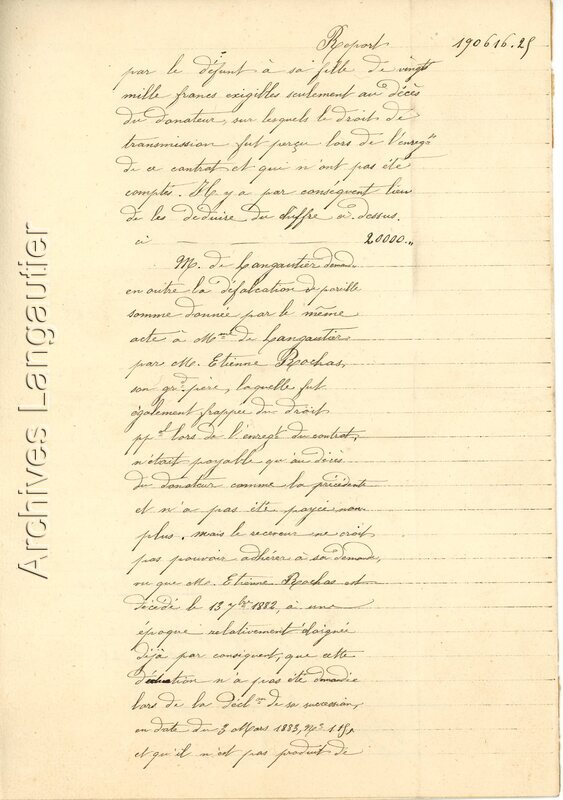 Report 190616.25
par le défunt à sa fille de vingt
mille francs exigibles seulement au décès
du donateur, sur lesquels le droit de
transmission fut perçu lors de l'enreg.
de ce contrat et qui n'ont pas été
comptés. Il y a par conséquent lieu
de les déduire du chiffre ci-dessus.
ci 20000.,,
M. de Langautier demande
en outre la défalcation de pareille
somme donnée par le même
acte à Mme de Langautier
par M. Etienne Rochas,
son gd. père, laquelle fut
également frappée du droit
ppel lors de l'enregt du contrat,
n'était payable qu'au décès
du donateur comme la précédente
et n'a pas été payée non
plus. mais le receveur ne croit
pas pouvoir adhérer à sa demande,
vu que M. Etienne Rochas est
décédé le 13 7bre 1882, à une
époque relativement éloignée
déjà par conséquent, que cette
déduction n'a pas été demandée
lors de la décl.on de sa succession,
en date du 3 Mars 1883, No 115,
et qu'il n'est pas produit de
Archives Langautier